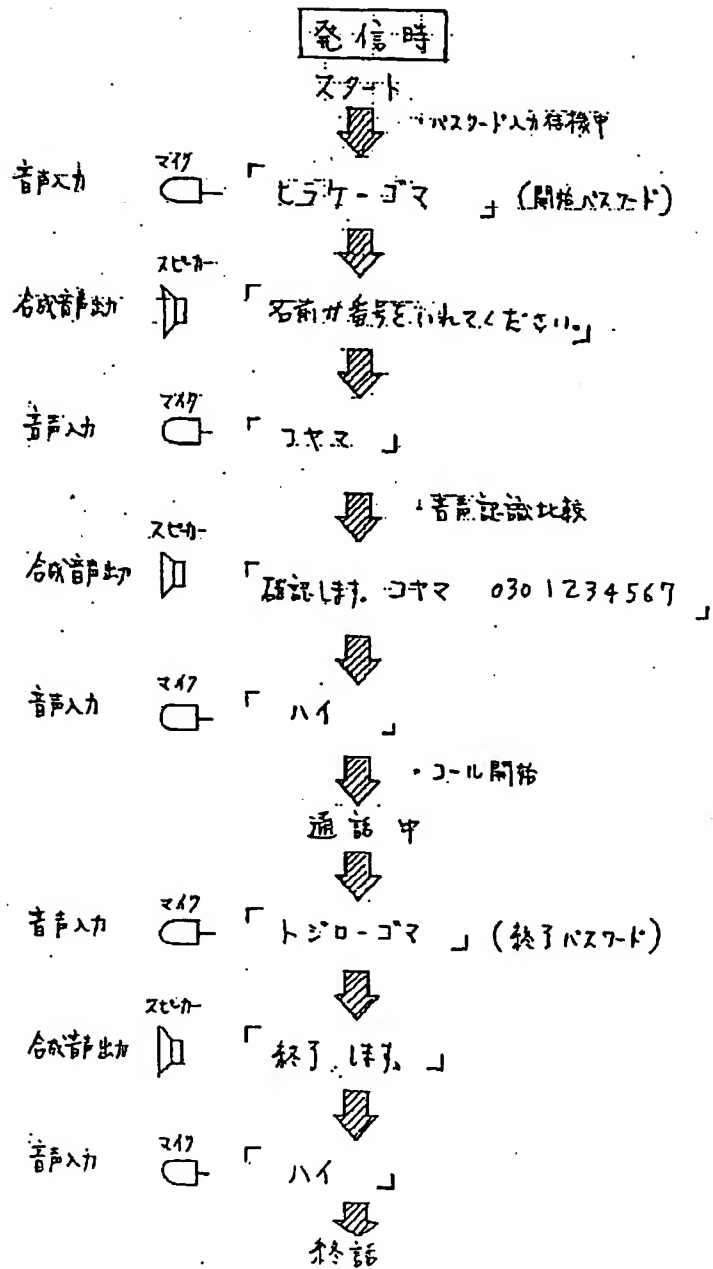 発信時
スタート
・パスワード入力待機中
音声入力 マイク 「ヒラケーゴマ」(開始パスワード)
合成音声出力 スピーカー 「名前か番号をいれてください。」
音声入力 マイク 「コヤマ」
・音声認識比較
合成音声出力 スピーカー 「確認します。コヤマ 030 1234567」
音声入力 マイク 「ハイ」
・コール開始
通話中
音声入力 マイク 「トジローゴマ」(終了パスワード)
合成音声出力 スピーカー 「終了します。」
音声入力 マイク 「ハイ」
終話